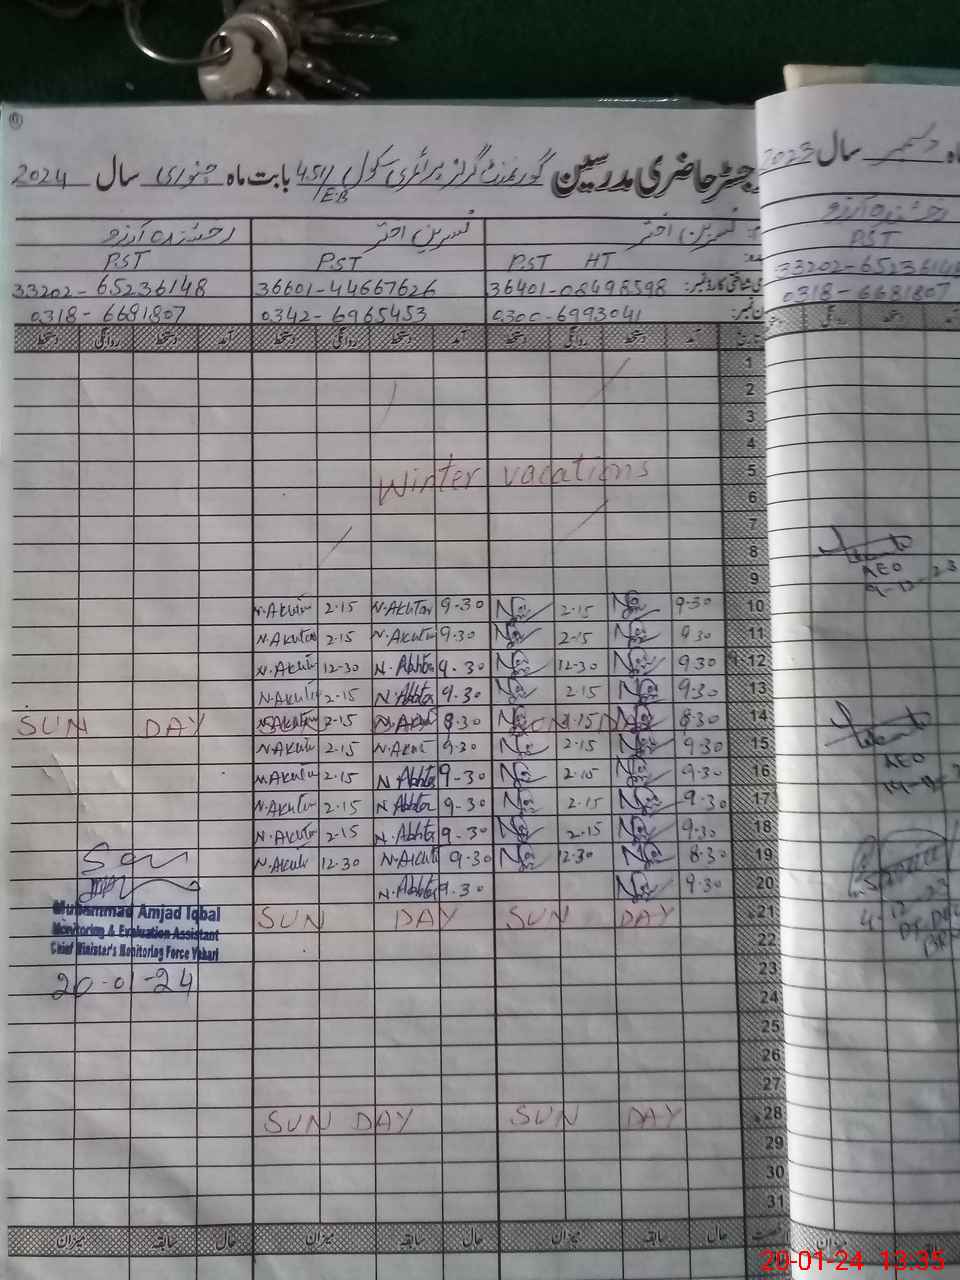 رجسٹر حاضری مدرسین گورنمنٹ گرلز پرائمری سکول 451/EB بابت ماہ جنوری سال 2024
نسرین اختر نسرین اختر رخشندہ آرزو
PST HT PST PST
36401-08498598 36601-44667626 33202-65236148
0300-6993041 0342-6965453 0318-6681807
آمد دستخط روانگی دستخط آمد دستخط روانگی دستخط آمد دستخط روانگی دستخط
1
2
3
4
Winter vacations 5
6
7
8
9
N.Akhtar 2-15 N.Akhtar 9-30 2-15 9-30 10
N.Akhtar 2-15 N.Akhtar 9-30 2-15 9-30 11
N.Akhtar 12-30 N.Akhtar 9-30 12-30 9-30 12
N.Akhtar 2-15 N.Akhtar 9-30 2-15 9-30 13
SUN DAY N.Akhtar 2-15 N.Akhtar 8-30 SUN DAY 2-15 8-30 14
N.Akhtar 2-15 N.Akhtar 9-30 2-15 9-30 15
N.Akhtar 2-15 N.Akhtar 9-30 2-15 9-30 16
N.Akhtar 2-15 N.Akhtar 9-30 2-15 9-30 17
N.Akhtar 2-15 N.Akhtar 9-30 2-15 9-30 18
N.Akhtar 12-30 N.Akhtar 9-30 12-30 8-30 19
N.Akhtar 9-30 9-30 20
SUN DAY SUN DAY 21
22
23
24
25
26
27
SUN DAY SUN DAY 28
29
30
31
میزان سابقہ حال میزان سابقہ حال میزان سابقہ حال
Muhammad Amjad Iqbal
Monitoring & Evaluation Assistant
Chief Minister's Monitoring Force Vehari
20-01-24
ماہ دسمبر سال 2023
رخشندہ آرزو
PST
33202-6523614
0318-6681807
روانگی دستخط
AEO
AEO
میزان
20-01-24 13:35